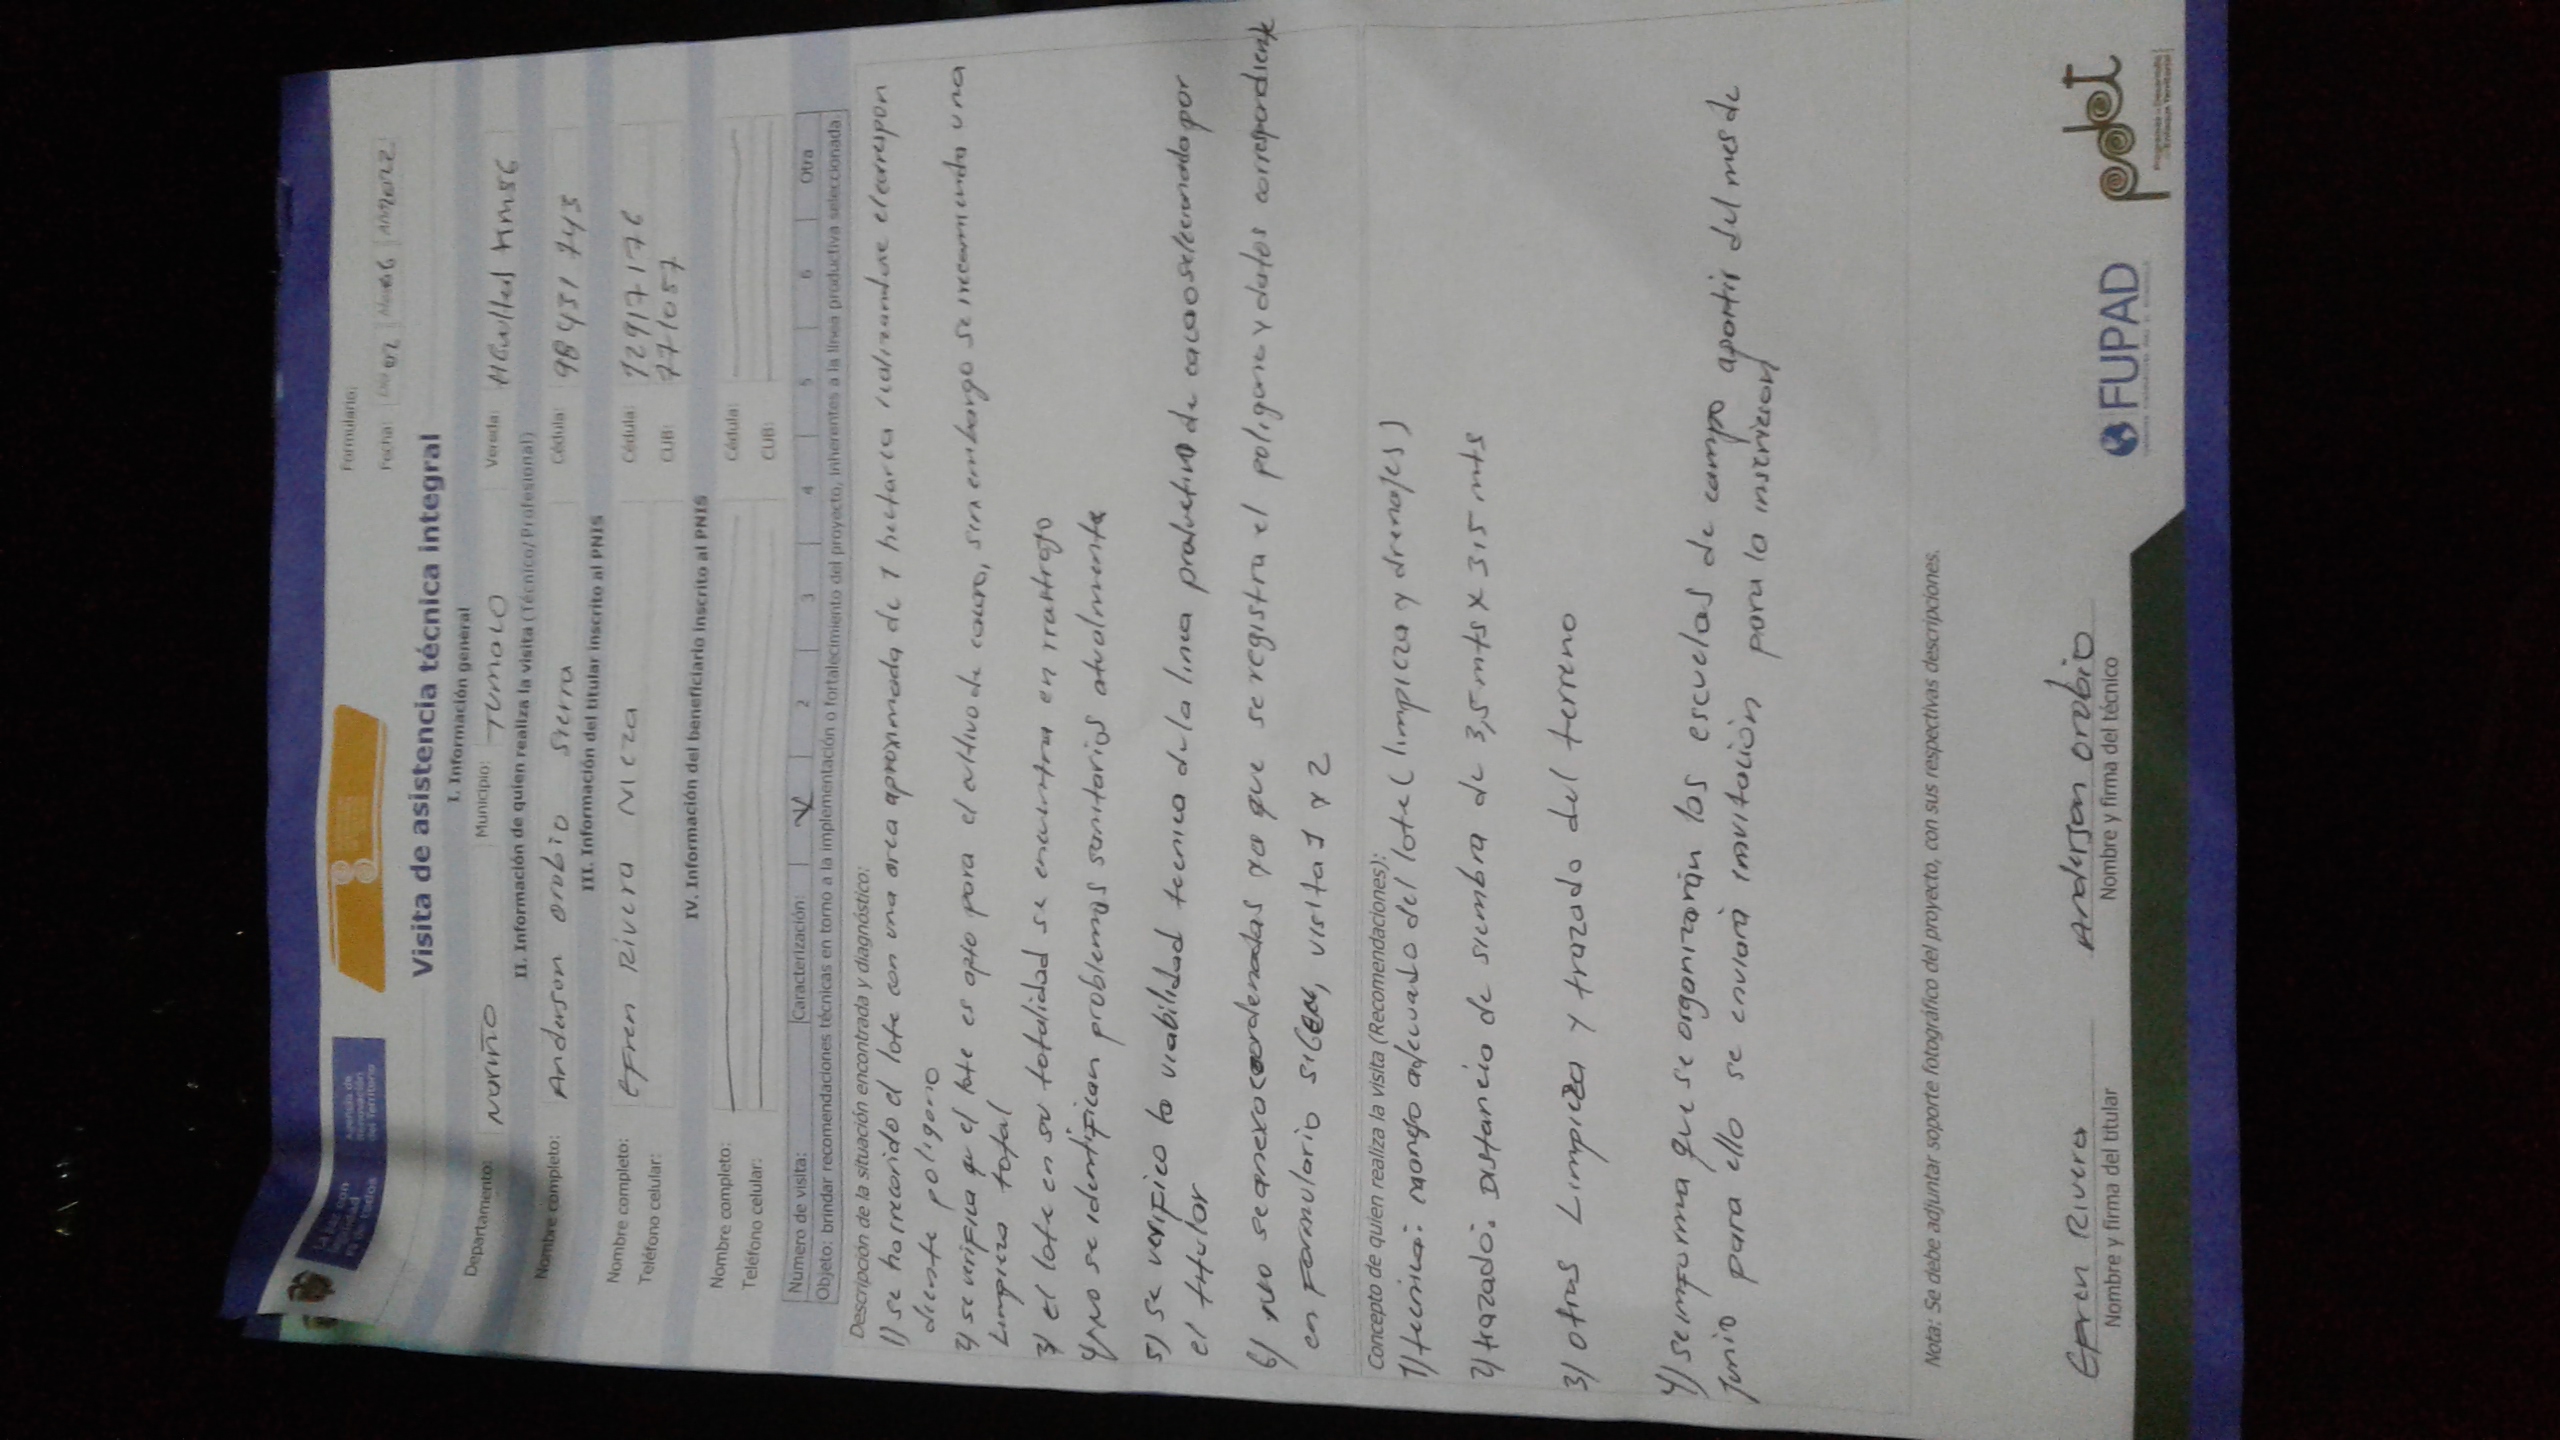 La paz con
legalidad
es de todos
Agencia de
Renovación
del Territorio
Formulario:
Fecha: 02 06 2022
Visita de asistencia técnica integral
I. Información general
Departamento: Nariño Municipio: Tumaco Vereda: km56
II. Información de quien realiza la visita (Técnico/Profesional)
Nombre completo: Anderson orobio sierra Cédula: 98431743
III. Información del titular inscrito al PNIS
Nombre completo: Efren Rivera Nieza Cédula: 12917176
Teléfono celular: CUB: 771057
IV. Información del beneficiario inscrito al PNIS
Nombre completo: Cédula:
Teléfono celular: CUB:
Número de visita: Caracterización: X 2 3 4 5 6 Otra
Objeto: brindar recomendaciones técnicas en torno a la implementación o fortalecimiento del proyecto, inherentes a la línea productiva seleccionada.
Descripción de la situación encontrada y diagnóstico:
1) se ha rrecorido el lote con una area aproximada de 1 hectarea realizandose el correspon
diente poligono
2) se verifica qe el lote es apto para el cultivo de cacao, sin embargo se recomienda una
Limpieza total
3) el lote en su totalidad se encuentra en rrastrojo
4) no se identifican problemas sanitarios atualmente
5) se verifico la viabilidad tecnica de la linea produtiva de cacao selecionada por
el titular
6) no se anexa coordenadas ya que se registra el poligono y datos correspondiente
en formulario visita 1 y 2
Concepto de quien realiza la visita (Recomendaciones):
1) tecnica: manejo adecuado del lote (limpieza y drenajes)
2) trazado: Distancia de siembra de 3,5 mts x 3,5 mts
3) otras Limpieza y trazado del terreno
4) se informa que se organizarán las escuelas de campo apartir del mes de
junio para ello se enviará invitación para la inscricion
Nota: Se debe adjuntar soporte fotográfico del proyecto, con sus respectivas descripciones.
Efren Rivera Anderson orobio
Nombre y firma del titular Nombre y firma del técnico
FUPAD
pdet
Programas de Desarrollo
con Enfoque Territorial